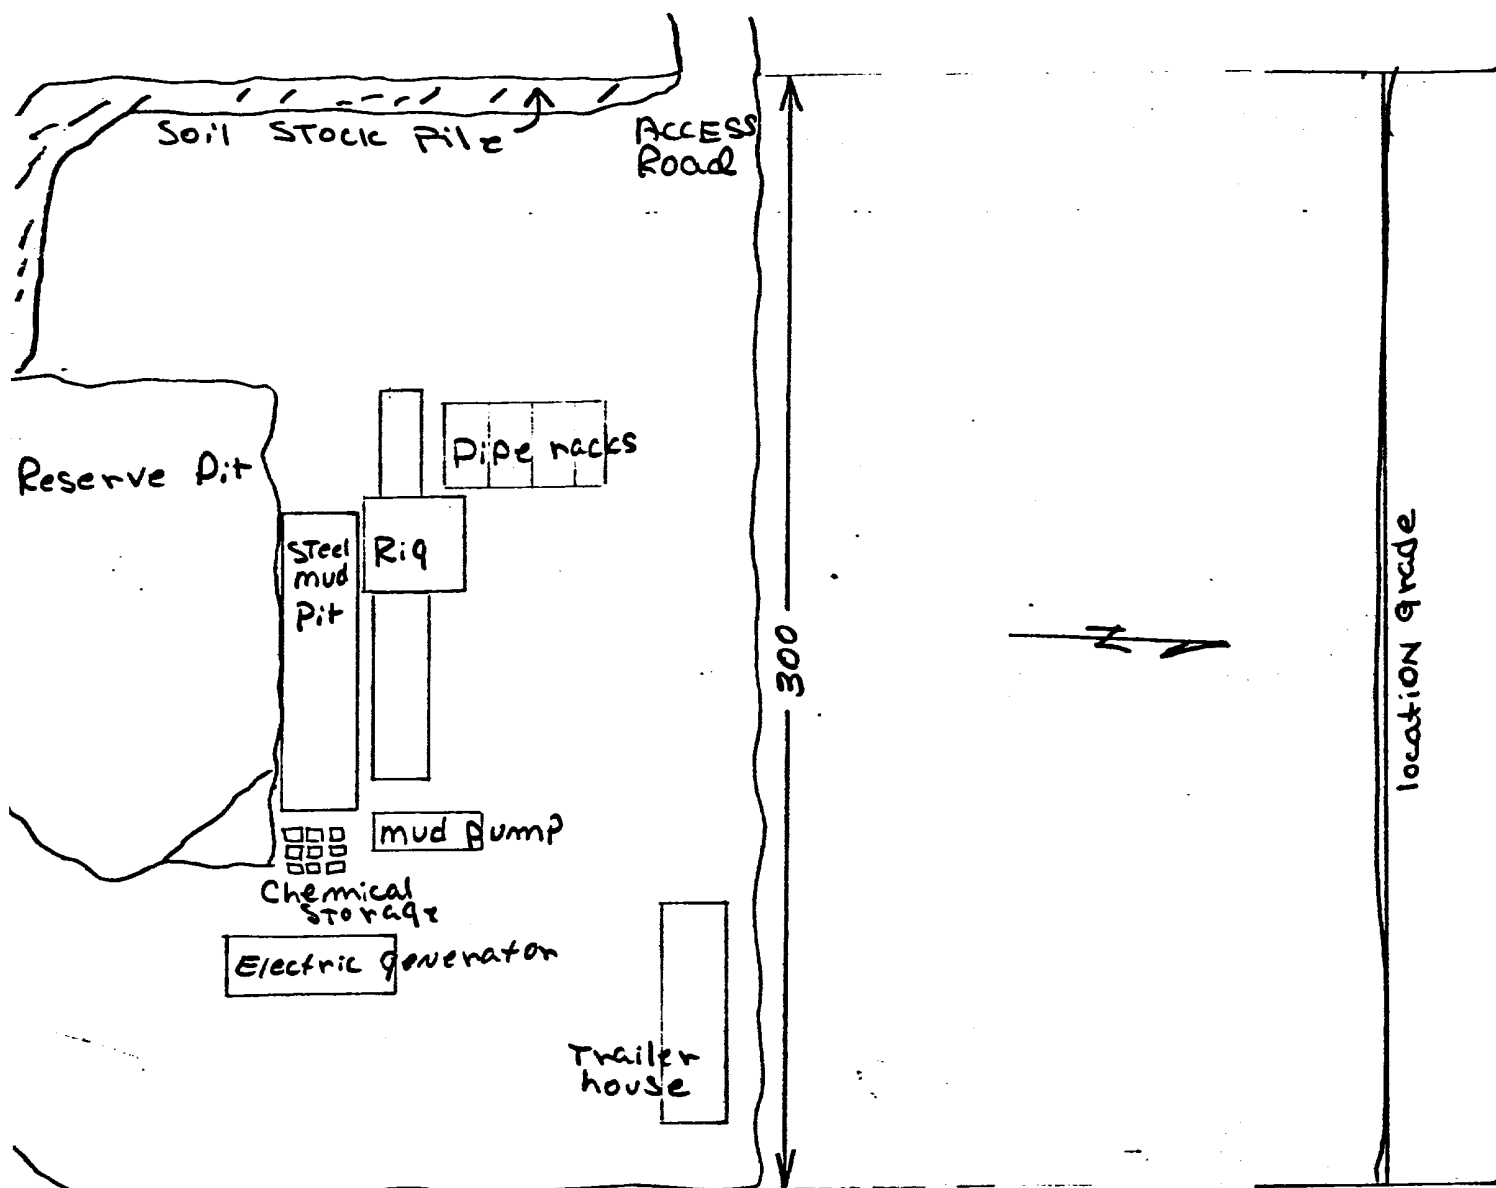 Soil Stock Pile
ACCESS
Road
Pipe racks
Reserve Pit
Steel
mud
Pit
Rig
300
N
location grade
mud pump
Chemical
Storage
Electric generator
Trailer
house